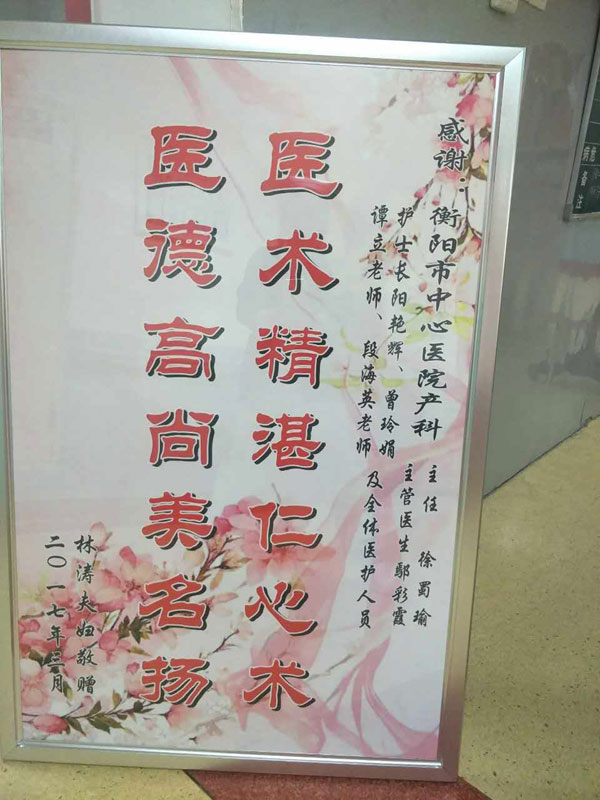 感谢：衡阳市中心医院产科 主任 徐蜀瑜
护士长阳艳辉、曾玲娟 主管医生鄢彩霞
谭立老师、段海英老师 及全体医护人员
医术精湛仁心术
医德高尚美名扬
林涛夫妇敬赠
二〇一七年三月
备注